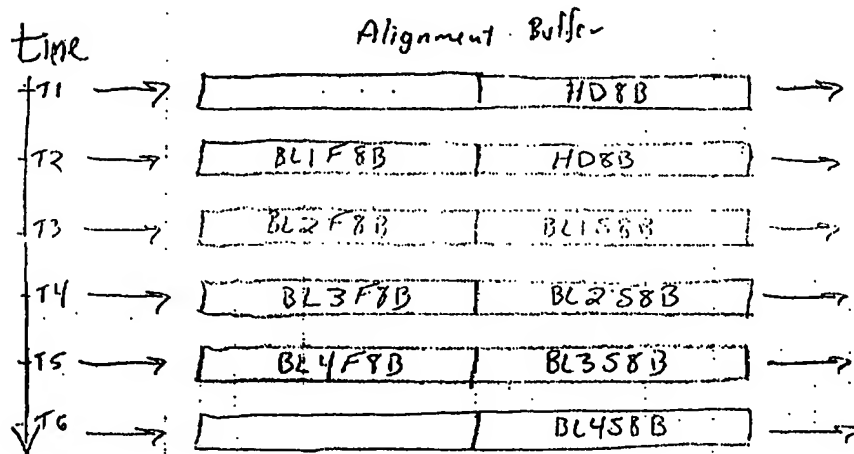 Alignment Buffer
time
T1 HD8B
T2 BL1F8B HD8B
T3 BL2F8B BL1S8B
T4 BL3F8B BL2S8B
T5 BL4F8B BL3S8B
T6 BL4S8B